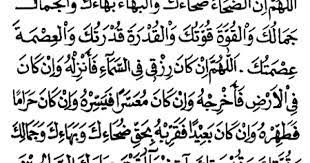 اَللّٰهُمَّ اِنَّ الضُّحَآءَ ضُحَاءُكَ وَالْبَهَاءَ بَهَاءُكَ وَالْجَمَالَ
جَمَالُكَ وَالْقُوَّةَ قُوَّتُكَ وَالْقُدْرَةَ قُدْرَتُكَ وَالْعِصْمَةَ
عِصْمَتُكَ . اَللّٰهُمَّ اِنْ كَانَ رِزْقِى فِى السَّمَآءِ فَأَنْزِلْهُ وَاِنْ كَانَ
فِى الْاَرْضِ فَأَخْرِجْهُ وَاِنْ كَانَ مُعَسَّرًا فَيَسِّرْهُ وَاِنْ كَانَ حَرَامًا
فَطَهِّرْهُ وَاِنْ كَانَ بَعِيْدًا فَقَرِّبْهُ بِحَقِّ ضُحَاءِكَ وَبَهَاءِكَ وَجَمَالِكَ